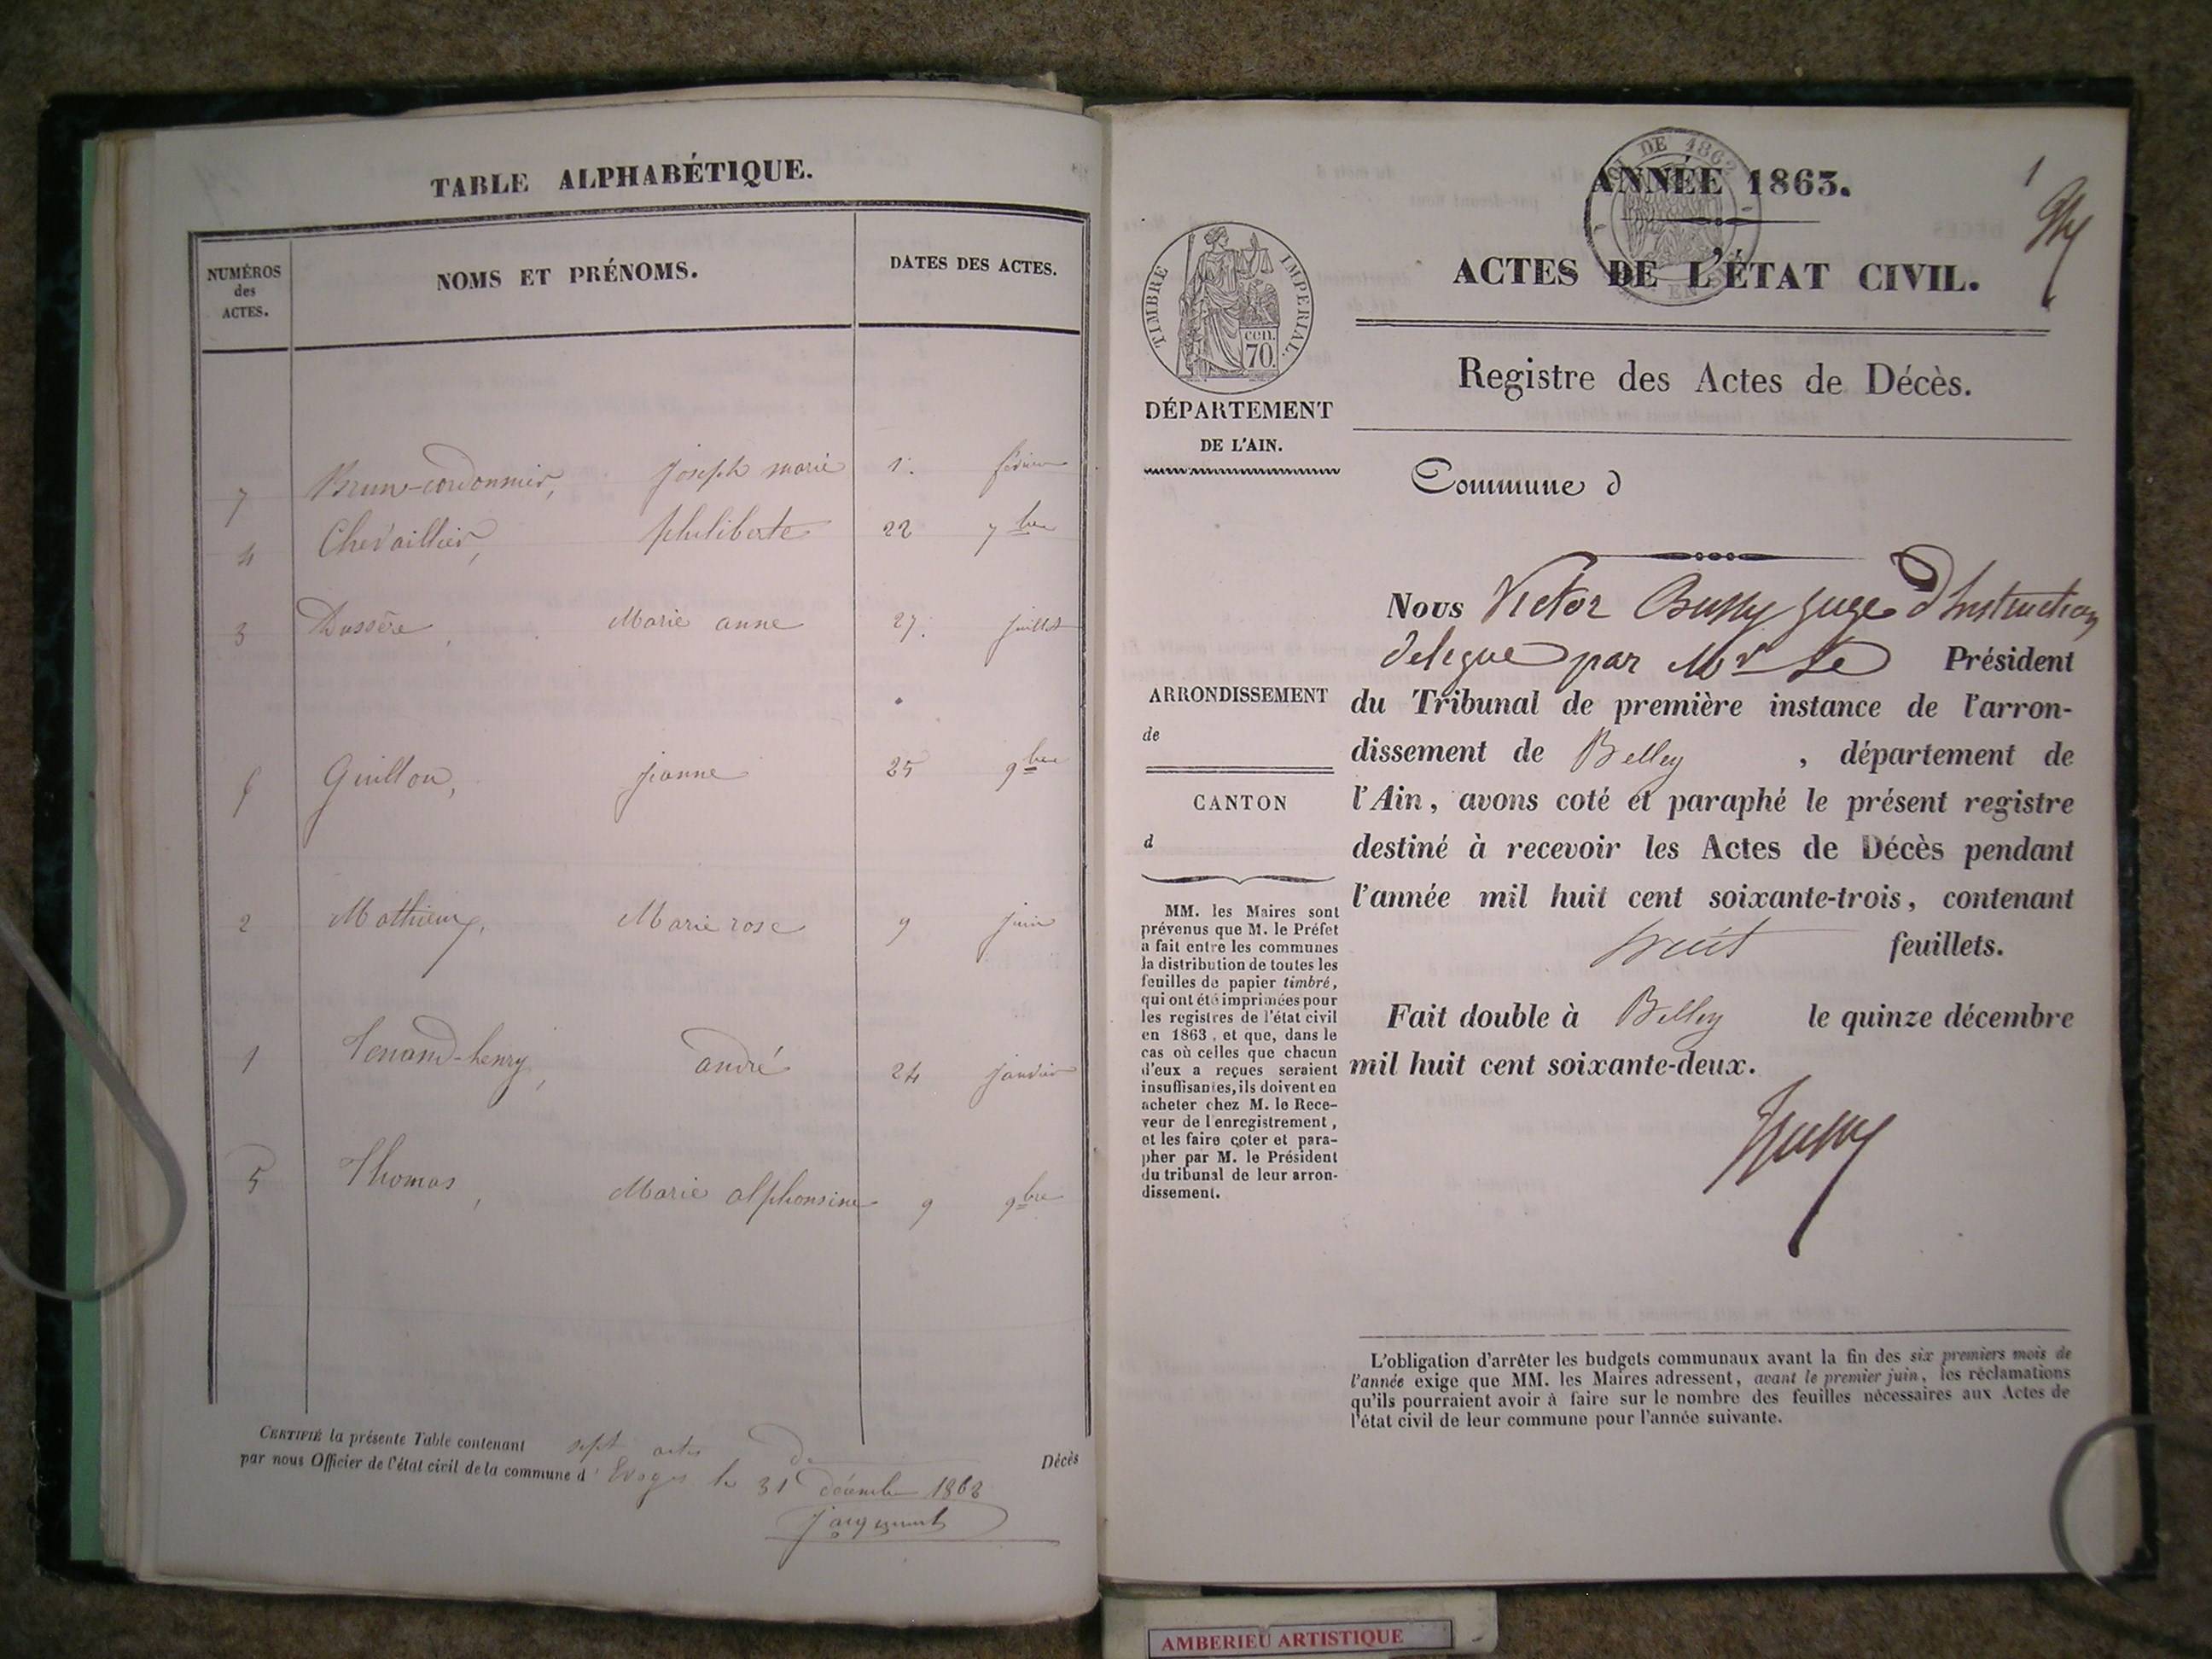 TABLE ALPHABÉTIQUE.
NUMÉROS
des
ACTES.
NOMS ET PRÉNOMS.
DATES DES ACTES.
7 Brun-cordonnier, Joseph marie 1. février
4 Chevaillier, philiberte 22 7bre
3 Dussère, Marie anne 27. juillet
6 Guillon, jeanne 25 9bre
2 Mathieu, Marie rose 9 juin
1 Tenand-henry, andré 24 janvier
5 Thomas, Marie alphonsine 9 9bre
CERTIFIÉ la présente Table contenant sept actes de Décès
par nous Officier de l'état civil de la commune d'Evoges le 31 décembre 1862
Jacquemet
1
ANNÉE 1863.
ACTES DE L'ÉTAT CIVIL.
Registre des Actes de Décès.
TIMBRE IMPÉRIAL.
cen.
70.
DÉPARTEMENT
DE L'AIN.
Commune d
Nous Victor Bussy juge d'Instruction
délégué par Mr le Président
du Tribunal de première instance de l'arron-
dissement de Belley, département de
l'Ain, avons coté et paraphé le présent registre
destiné à recevoir les Actes de Décès pendant
l'année mil huit cent soixante-trois, contenant
huit feuillets.
Fait double à Belley le quinze décembre
mil huit cent soixante-deux.
Bussy
ARRONDISSEMENT
de
CANTON
d
MM. les Maires sont
prévenus que M. le Préfet
a fait entre les communes
la distribution de toutes les
feuilles de papier timbré,
qui ont été imprimées pour
les registres de l'état civil
en 1863, et que, dans le
cas où celles que chacun
d'eux a reçues seraient
insuffisantes, ils doivent en
acheter chez M. le Rece-
veur de l'enregistrement,
et les faire coter et para-
pher par M. le Président
du tribunal de leur arron-
dissement.
L'obligation d'arrêter les budgets communaux avant la fin des six premiers mois de
l'année exige que MM. les Maires adressent, avant le premier juin, les réclamations
qu'ils pourraient avoir à faire sur le nombre des feuilles nécessaires aux Actes de
l'état civil de leur commune pour l'année suivante.
AMBERIEU ARTISTIQUE